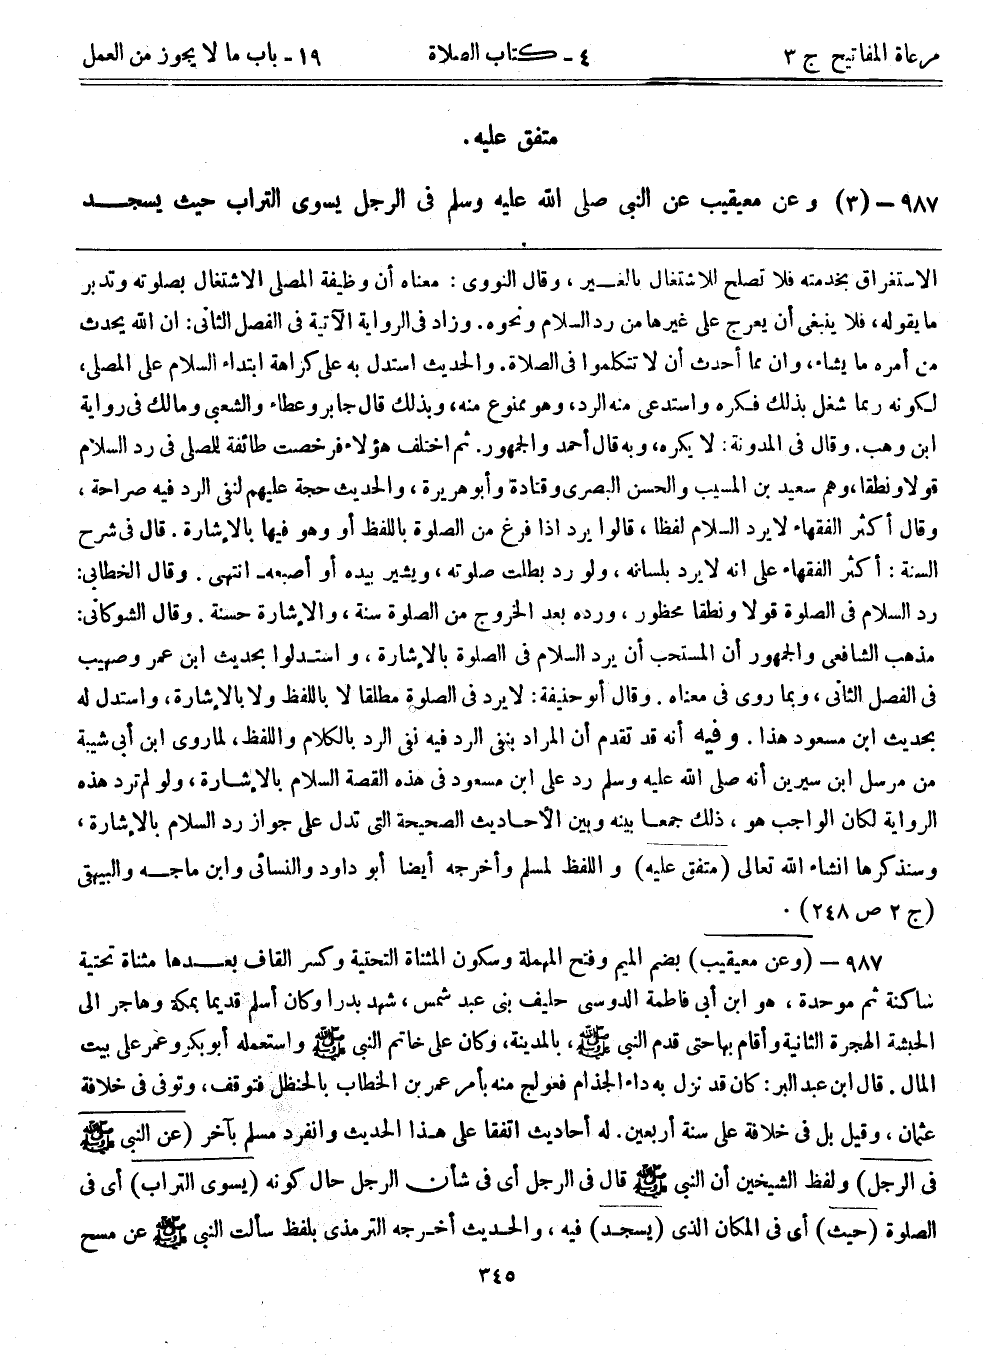 مرعاة المفاتيح ج ٣ ٤ - كتاب الصلاة ١٩ - باب ما لا يجوز من العمل
متفق عليه .
٩٨٧ – (٣) وعن معيقيب عن النبى صلى الله عليه وسلم فى الرجل يسوى التراب حيث يسجد
الاستغراق بخدمته فلا تصلح للاشتغال بالغير ، وقال النووى : معناه أن وظيفة المصلى الاشتغال بصلوته وتدبر
ما يقوله، فلا ينبغى أن يعرج على غيرها من رد السلام ونحوه. وزاد فى الرواية الآتية فى الفصل الثانى: ان الله يحدث
من أمره ما يشاء، وان مما أحدث أن لا تتكلموا فى الصلاة. والحديث استدل به على كراهة ابتداء السلام على المصلى،
لكونه ربما شغل بذلك فكره واستدعى منه الرد، وهو ممنوع منه، وبذلك قال جابر وعطاء والشعبى ومالك فى رواية
ابن وهب. وقال فى المدونة: لا يكره، وبه قال أحمد والجمهور. ثم اختلف هؤلاء فرخصت طائفة للصلى فى رد السلام
قولا ونطقا، وهم سعيد بن المسيب والحسن البصرى وقتادة وأبو هريرة ، والحديث حجة عليهم لنفى الرد فيه صراحة ،
وقال أكثر الفقهاء لا يرد السلام لفظا ، قالوا يرد اذا فرغ من الصلوة باللفظ أو وهو فيها بالإشارة . قال فى شرح
السنة : أكثر الفقهاء على انه لا يرد بلسانه ، ولو رد بطلت صلوته ، ويشير بيده أو أصبعه- انتهى . وقال الخطابى:
رد السلام فى الصلوة قولا ونطقا محظور ، ورده بعد الخروج من الصلوة سنة ، والإشارة حسنة . وقال الشوكانى:
مذهب الشافعى والجمهور أن المستحب أن يرد السلام فى الصلوة بالإشارة ، واستدلوا بحديث ابن عمر وصهيب
فى الفصل الثانى ، وبما روى فى معناه . وقال أبو حنيفة: لا يرد فى الصلوة مطلقا لا باللفظ ولا بالإشارة، واستدل له
بحديث ابن مسعود هذا . وفيه أنه قد تقدم أن المراد بنفى الرد فيه نفى الرد بالكلام واللفظ، لما روى ابن أبى شيبة
من مرسل ابن سيرين أنه صلى الله عليه وسلم رد على ابن مسعود فى هذه القصة السلام بالإشارة ، ولو لم ترد هذه
الرواية لكان الواجب هو ، ذلك جمعا بينه وبين الأحاديث الصحيحة التى تدل على جواز رد السلام بالإشارة ،
وسنذكرها انشاء الله تعالى (متفق عليه) و اللفظ لمسلم وأخرجه أيضا أبو داود والنسائى وابن ماجه والبيهقى
(ج ٢ ص ٢٤٨) .
٩٨٧ – (وعن معيقيب) بضم الميم وفتح المهملة وسكون المثناة التحتية وكسر القاف بعدها مثناة تحتية
ساكنة ثم موحدة ، هو ابن أبى فاطمة الدوسى حليف بنى عبد شمس ، شهد بدرا وكان أسلم قديما بمكة وهاجر الى
الحبشة الهجرة الثانية وأقام بها حتى قدم النبى ﷺ ، بالمدينة، وكان على خاتم النبى ﷺ واستعمله أبو بكر وعمر على بيت
المال . قال ابن عبد البر: كان قد نزل به داء الجذام فعولج منه بأمر عمر بن الخطاب بالحنظل فتوقف، وتوفى فى خلافة
عثمان ، وقيل بل فى خلافة على سنة أربعين. له أحاديث اتفقا على هذا الحديث وانفرد مسلم بآخر (عن النبى ﷺ
فى الرجل) ولفظ الشيخين أن النبى ﷺ قال فى الرجل أى فى شأن الرجل حال كونه (يسوى التراب) أى فى
الصلوة (حيث) أى فى المكان الذى (يسجد) فيه ، والحديث أخرجه الترمذى بلفظ سألت النبى ﷺ عن مسح
٣٤٥